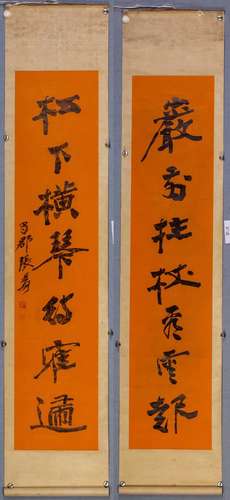 巖前拄杖看雲
松下橫琴待寉
蜀郡張爰